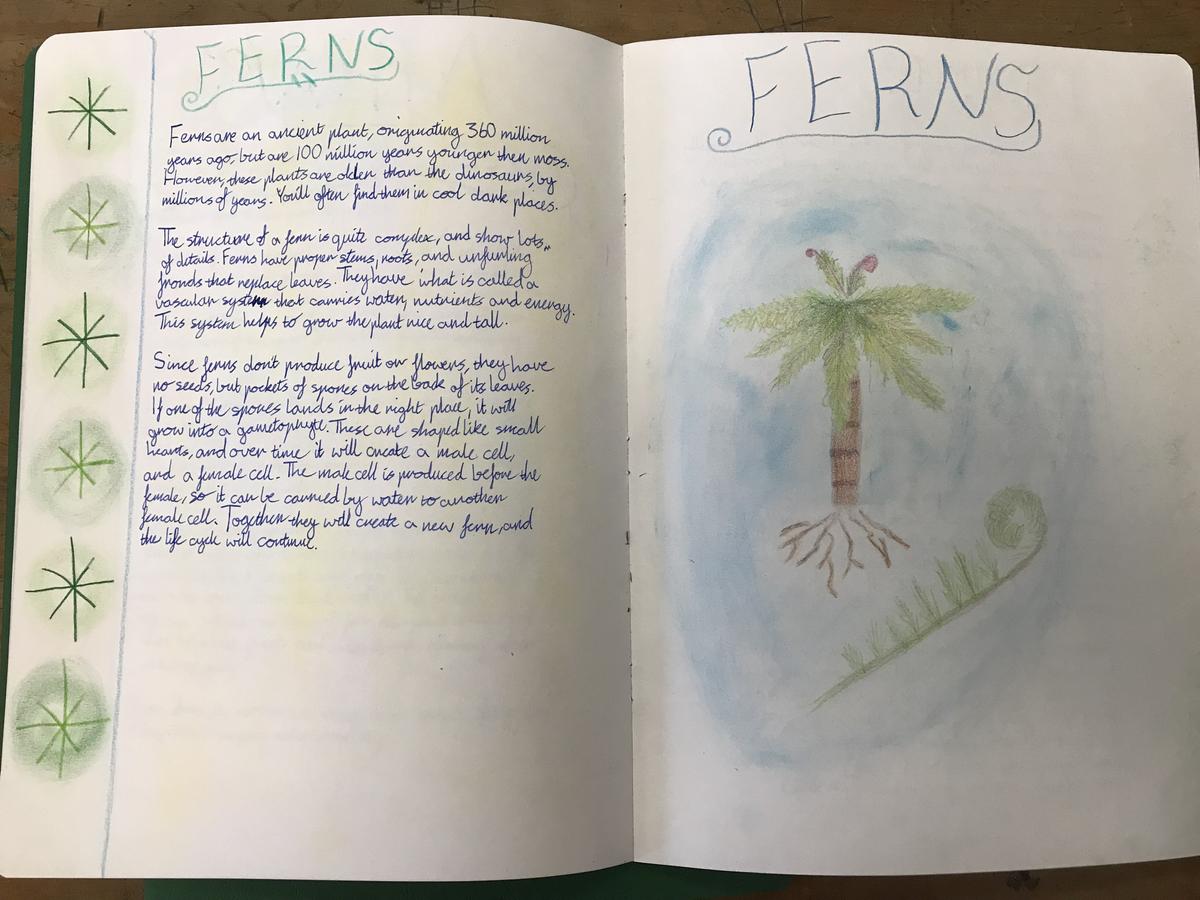 FERNS
Ferns are an ancient plant, originating 360 million
years ago, but are 100 million years younger then moss.
However, these plants are older than the dinosaurs, by
millions of years. You'll often find them in cool dark places.
The structure of a fern is quite complex, and show lots
of details. Ferns have proper stems, roots, and unfurling
fronds that replace leaves. They have what is called a
vascular system that carries water, nutrients and energy.
This system helps to grow the plant nice and tall.
Since ferns don't produce fruit or flowers, they have
no seeds, but pockets of spores on the back of its leaves.
If one of the spores lands in the right place, it will
grow into a gametophyte. These are shaped like small
hearts, and over time it will create a male cell,
and a female cell. The male cell is produced before the
female, so it can be carried by water to another
female cell. Together they will create a new fern, and
the life cycle will continue.
FERNS